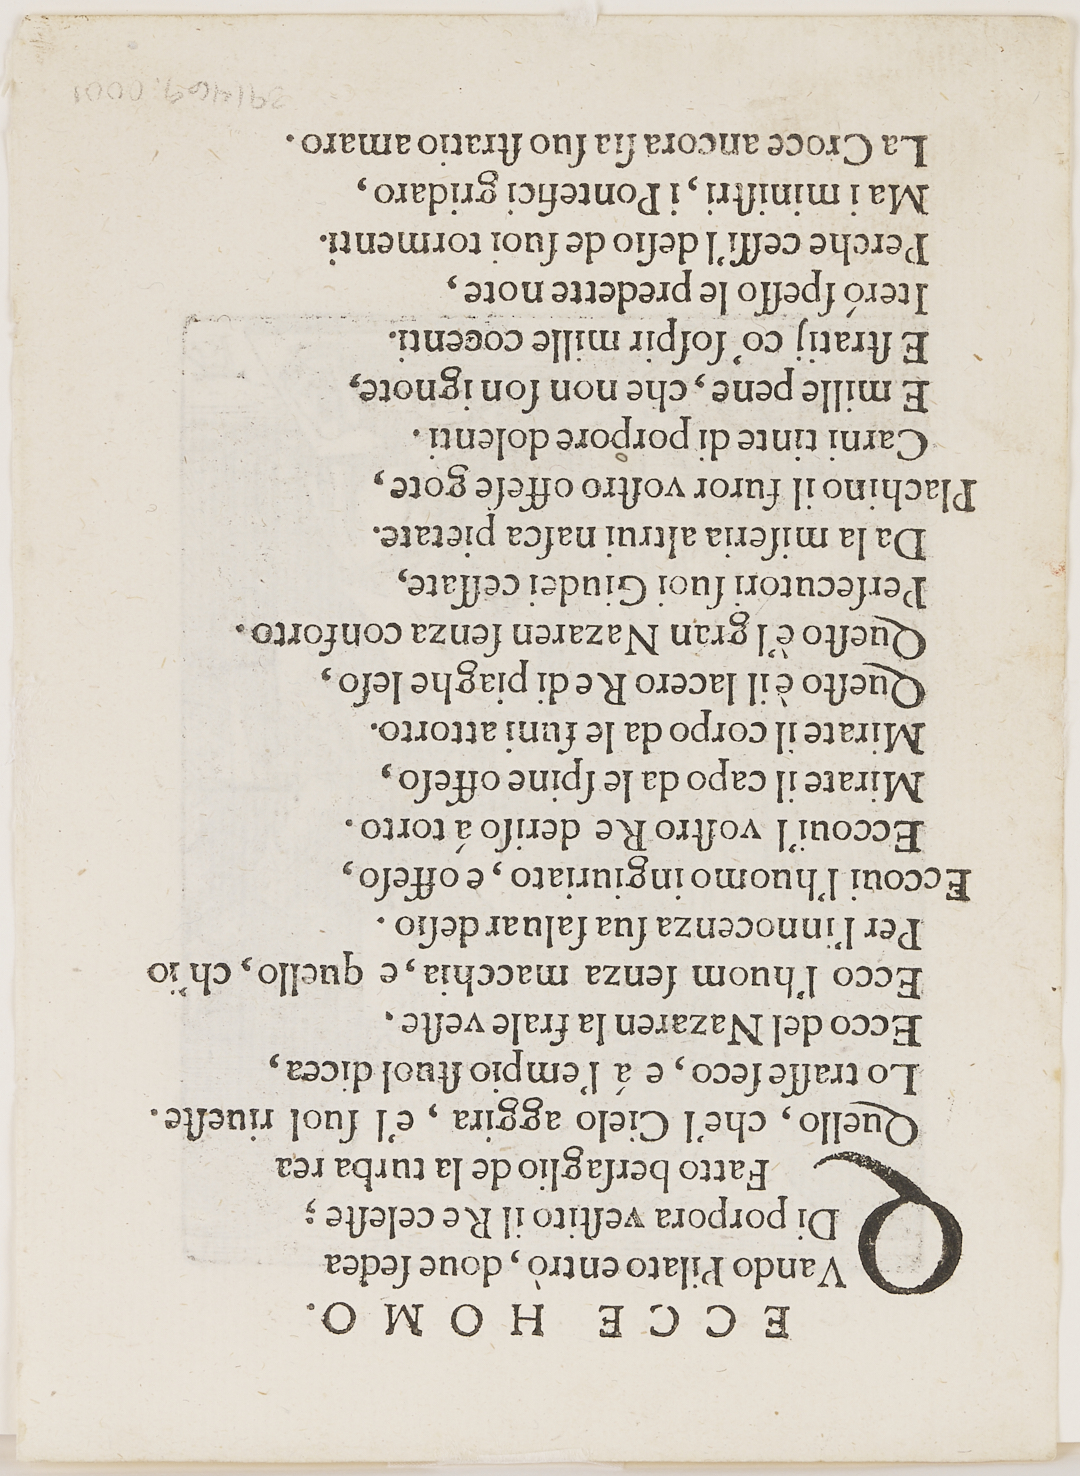 ECCE HOMO.
QVando Pilato entrò, doue ſedea
Di porpora veſtito il Re celeſte;
Fatto berſaglio de la turba rea
Quello, che'l Cielo aggira, e'l ſuol riueſte.
Lo traſſe ſeco, e á l'empio ſtuol dicea,
Ecco del Nazaren la frale veſte.
Ecco l'huom ſenza macchia, e quello, ch'io
Per l'innocenza ſua ſaluar deſio.
Eccoui l'huomo ingiuriato, e offeſo,
Eccoui'l voſtro Re deriſo á torto.
Mirate il capo da le ſpine offeſo,
Mirate il corpo da le funi attorto.
Queſto è il lacero Re di piaghe leſo,
Queſto è'l gran Nazaren ſenza conforto.
Perſecutori ſuoi Giudei ceſſate,
Da la miſeria altrui naſca pietate.
Plachino il furor voſtro offeſe gote,
Carni tinte di porpore dolenti.
E mille pene, che non ſon ignote,
E ſtratij co' ſoſpir mille cocenti.
Iteró ſpeſſo le predette note,
Perche ceſſi'l deſio de ſuoi tormenti.
Ma i miniſtri, i Pontefici gridaro,
La Croce ancora ſia ſuo ſtratio amaro.
39/469.0001